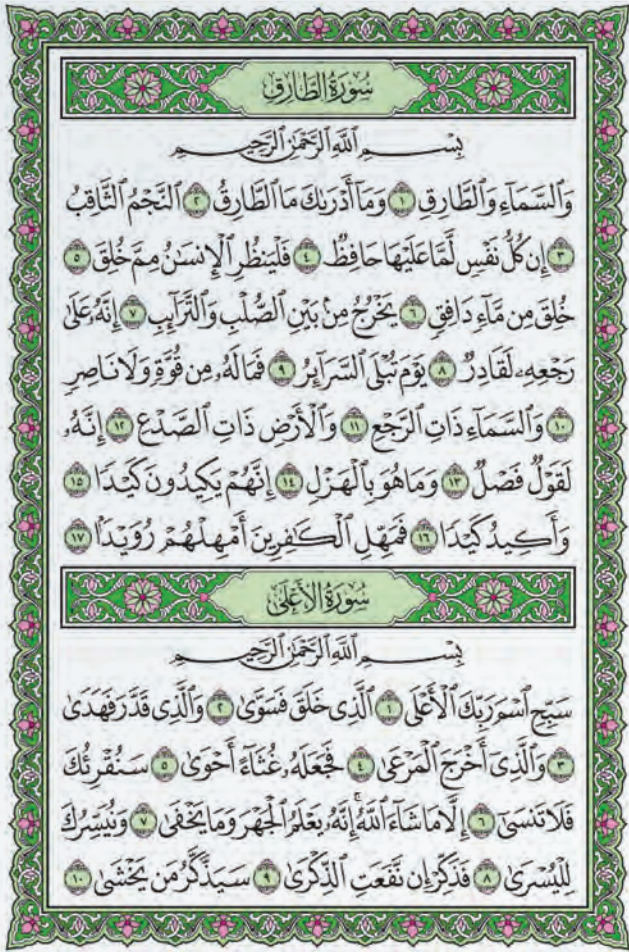 سُورَةُ الطَّارِقِ
بِسْمِ اللَّهِ الرَّحْمَٰنِ الرَّحِيمِ
وَالسَّمَاءِ وَالطَّارِقِ ١ وَمَا أَدْرَىٰكَ مَا الطَّارِقُ ٢ النَّجْمُ الثَّاقِبُ
٣ إِن كُلُّ نَفْسٍ لَّمَّا عَلَيْهَا حَافِظٌ ٤ فَلْيَنظُرِ الْإِنسَٰنُ مِمَّ خُلِقَ ٥
خُلِقَ مِن مَّاءٍ دَافِقٍ ٦ يَخْرُجُ مِنۢ بَيْنِ الصُّلْبِ وَالتَّرَائِبِ ٧ إِنَّهُۥ عَلَىٰ
رَجْعِهِۦ لَقَادِرٌ ٨ يَوْمَ تُبْلَى السَّرَائِرُ ٩ فَمَا لَهُۥ مِن قُوَّةٍ وَلَا نَاصِرٍ
١٠ وَالسَّمَاءِ ذَاتِ الرَّجْعِ ١١ وَالْأَرْضِ ذَاتِ الصَّدْعِ ١٢ إِنَّهُۥ
لَقَوْلٌ فَصْلٌ ١٣ وَمَا هُوَ بِالْهَزْلِ ١٤ إِنَّهُمْ يَكِيدُونَ كَيْدًا ١٥
وَأَكِيدُ كَيْدًا ١٦ فَمَهِّلِ الْكَٰفِرِينَ أَمْهِلْهُمْ رُوَيْدًۢا ١٧
سُورَةُ الأَعْلَىٰ
بِسْمِ اللَّهِ الرَّحْمَٰنِ الرَّحِيمِ
سَبِّحِ اسْمَ رَبِّكَ الْأَعْلَى ١ الَّذِي خَلَقَ فَسَوَّىٰ ٢ وَالَّذِي قَدَّرَ فَهَدَىٰ
٣ وَالَّذِي أَخْرَجَ الْمَرْعَىٰ ٤ فَجَعَلَهُۥ غُثَاءً أَحْوَىٰ ٥ سَنُقْرِئُكَ
فَلَا تَنسَىٰ ٦ إِلَّا مَا شَاءَ اللَّهُ ۚ إِنَّهُۥ يَعْلَمُ الْجَهْرَ وَمَا يَخْفَىٰ ٧ وَنُيَسِّرُكَ
لِلْيُسْرَىٰ ٨ فَذَكِّرْ إِن نَّفَعَتِ الذِّكْرَىٰ ٩ سَيَذَّكَّرُ مَن يَخْشَىٰ ١٠